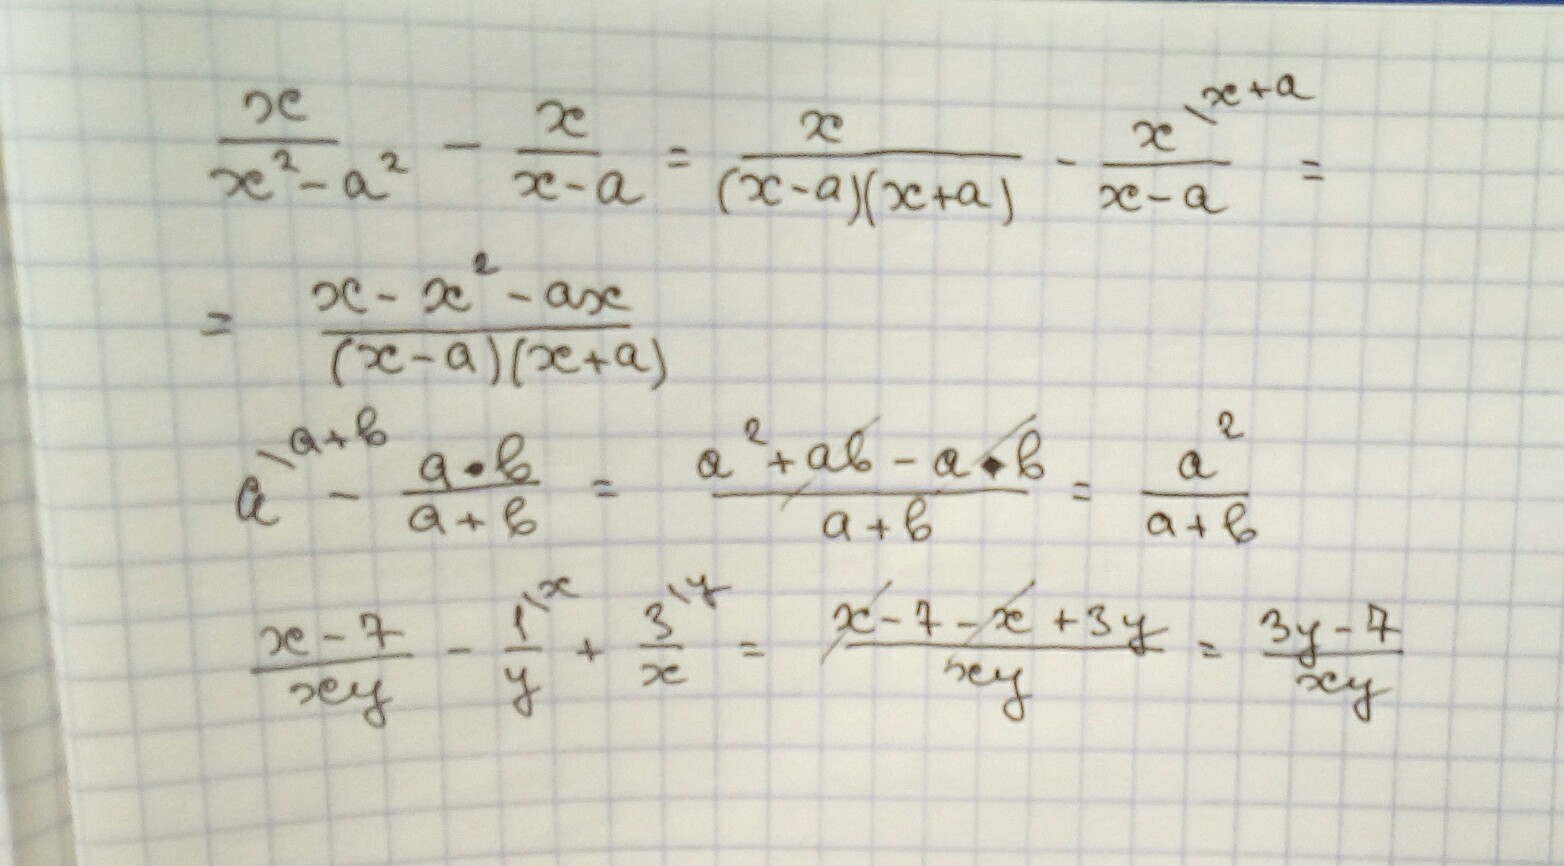 x/(x²-a²) - x/(x-a) = x/((x-a)(x+a)) - x\x+a/(x-a) =
= (x-x²-ax)/((x-a)(x+a))
a\a+b - (a•b)/(a+b) = (a²+ab-a•b)/(a+b) = a²/(a+b)
(x-7)/(xy) - 1\x/y + 3\y/x = (x-7-x+3y)/(xy) = (3y-7)/(xy)